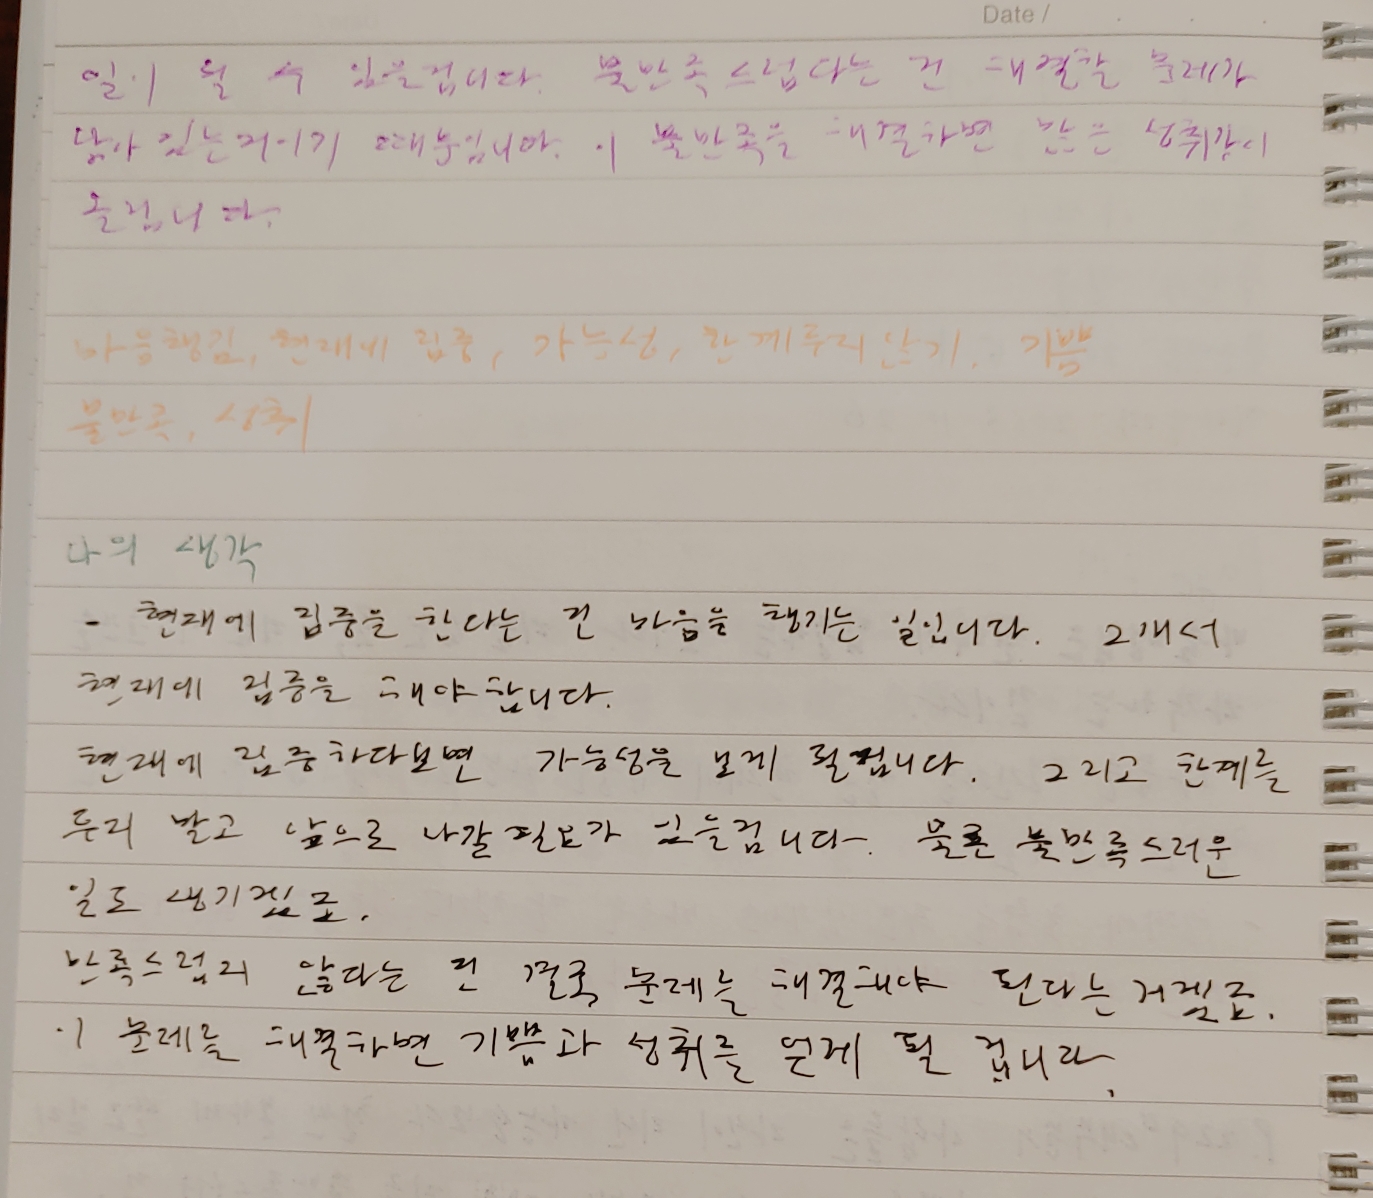 Date /
일이 될 수 있을겁니다. 불만족스럽다는 건 해결할 문제가
남아 있는거이기 때문입니다. 이 불만족을 해결하면 많은 성취감이
올겁니다.
마음챙김, 현재에 집중, 가능성, 한계두지않기. 기쁨
불만족, 성취
나의 생각
- 현재에 집중을 한다는 건 마음을 챙기는 일입니다. 그래서
현재에 집중을 해야합니다.
현재에 집중하다보면 가능성을 보게 될겁니다. 그리고 한계를
두지 말고 앞으로 나갈 필요가 있을겁니다. 물론 불만족스러운
일도 생기겠죠.
만족스럽지 않다는 건 결국 문제를 해결해야 된다는거겠죠.
이 문제를 해결하면 기쁨과 성취를 얻게 될 겁니다.